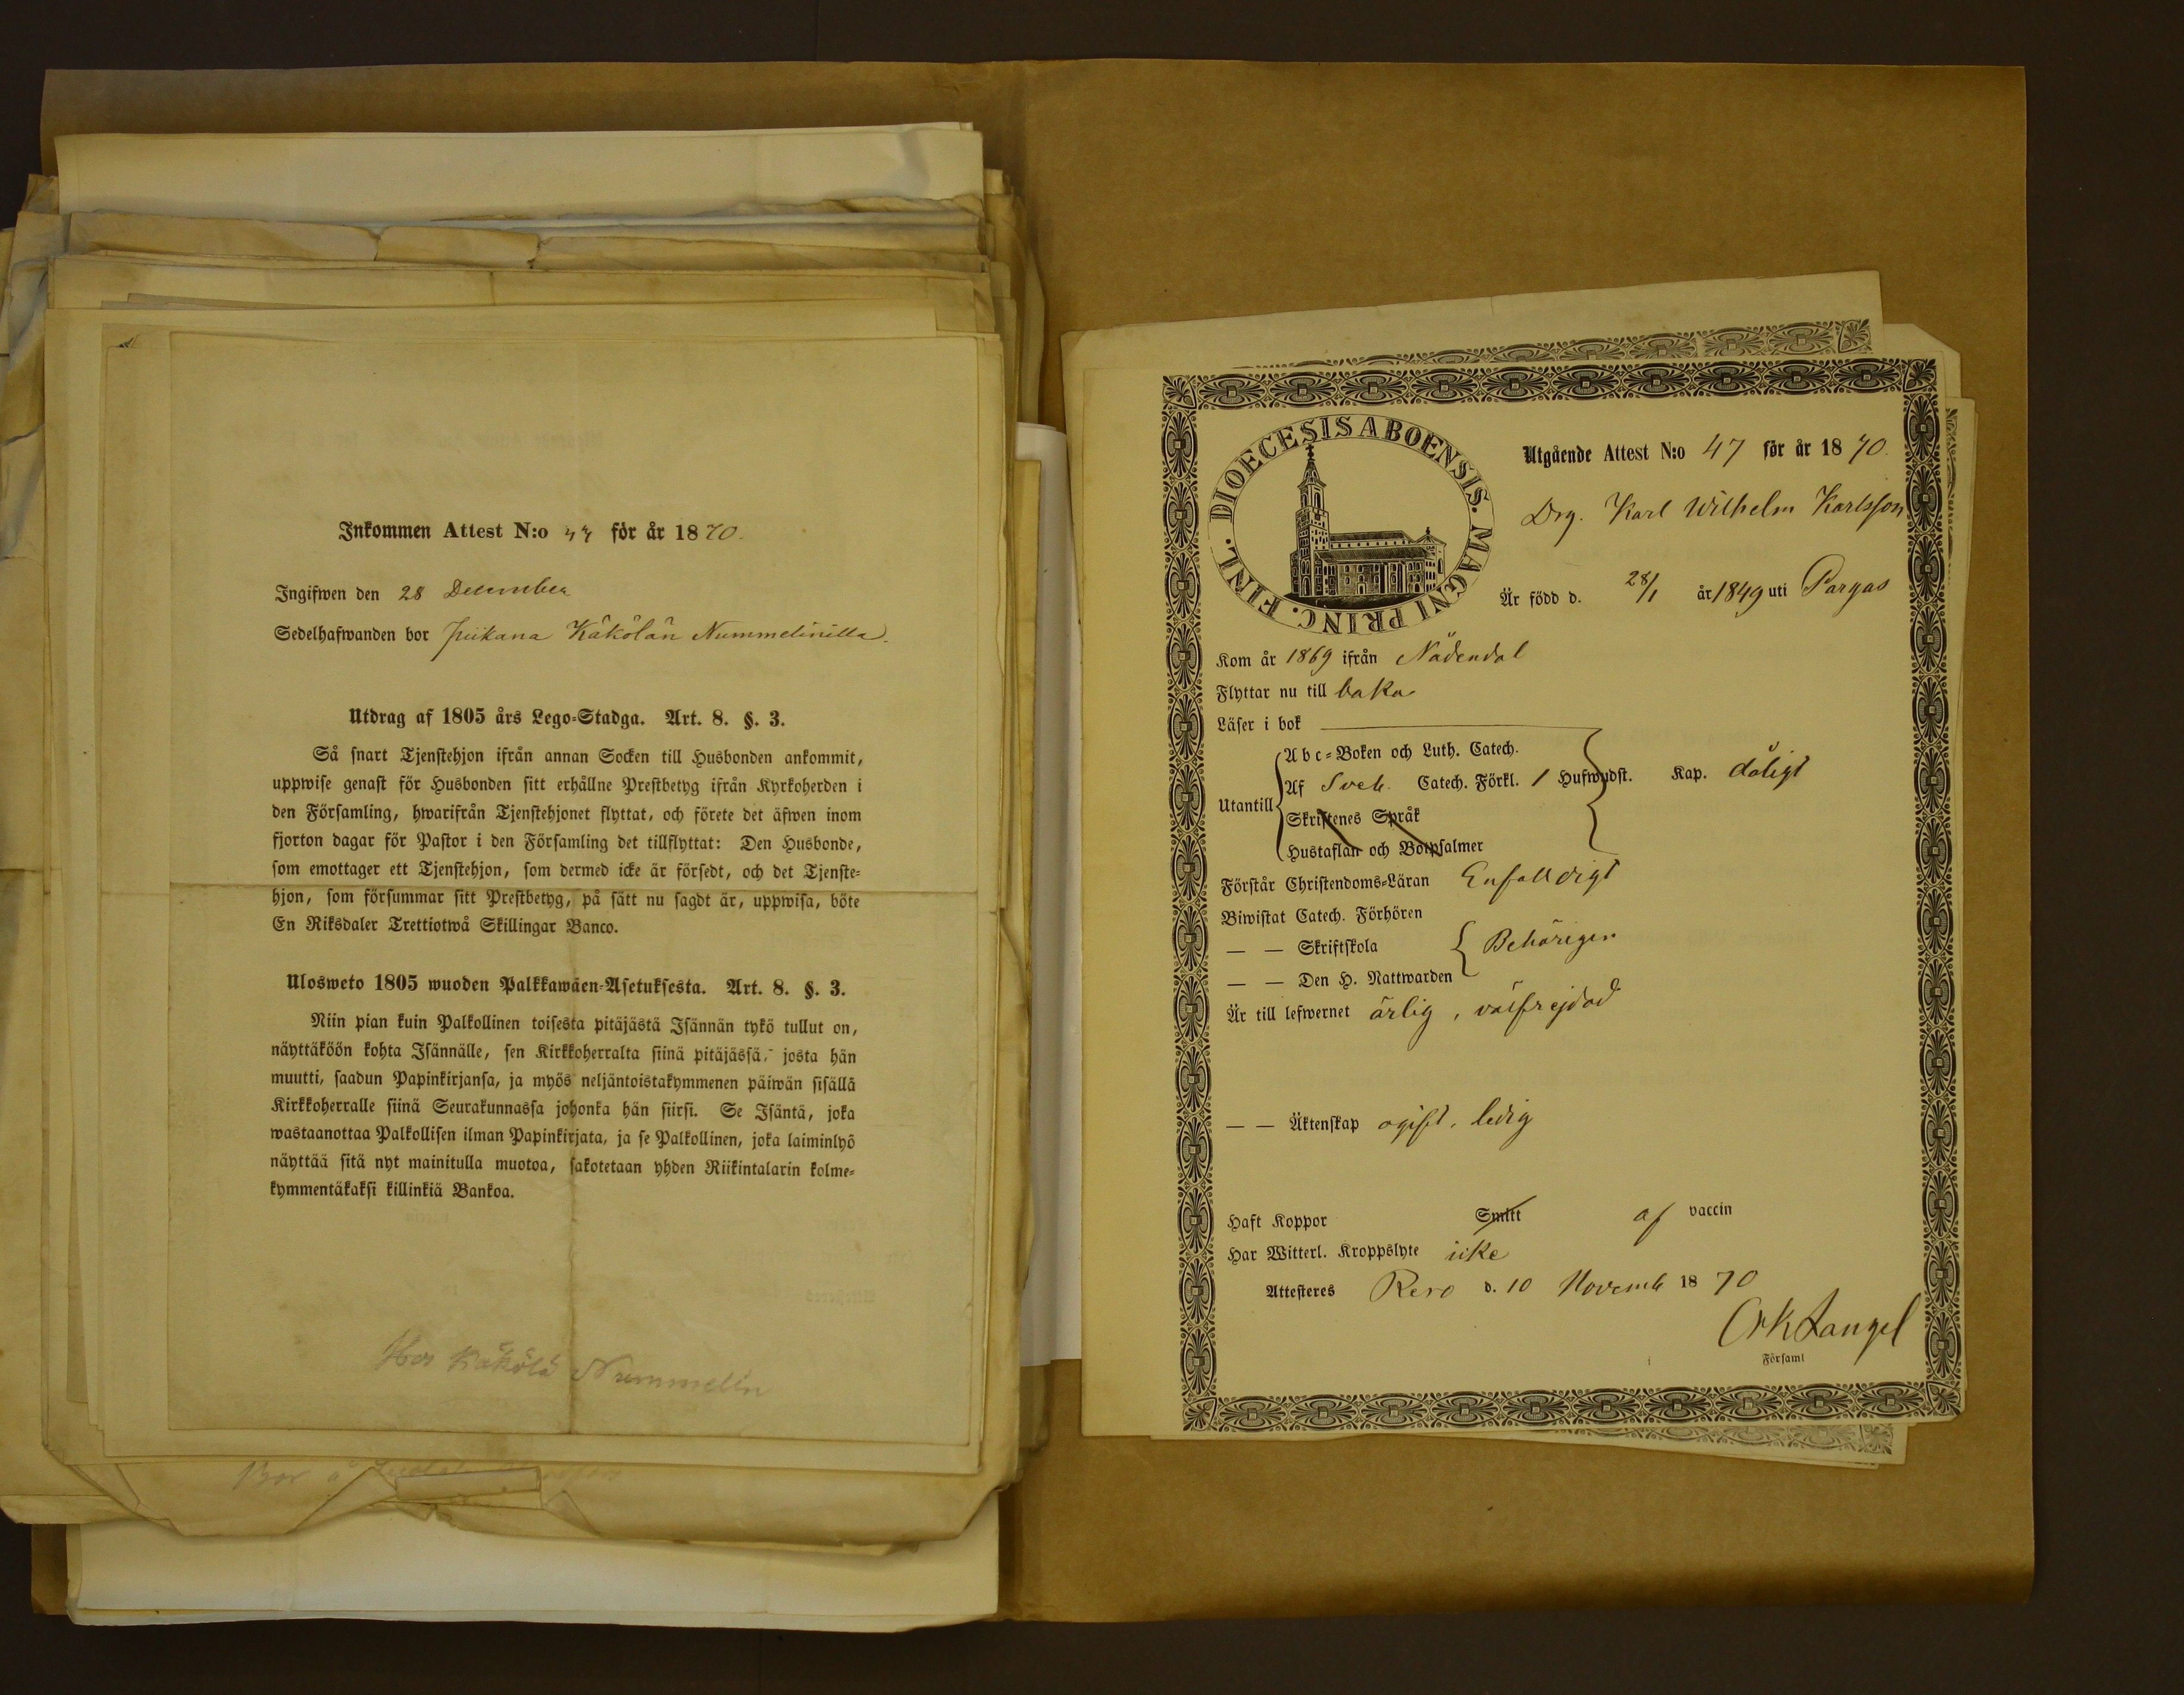 Inkommen Attest N:o 44 för år 1870.
Ingifwen den 28 December
Sedelhafwanden bor Piikana Käkölän Nummelinilla.
Utdrag af 1805 års Lego-Stadga. Art. 8. §. 3.
Så snart Tjenstehjon ifrån annan Socken till Husbonden ankommit,
uppwise genast för Husbonden sitt erhållne Prestbetyg ifrån Kyrkoherden i
den Församling, hwarifrån Tjenstehjonet flyttat, och förete det äfwen inom
fjorton dagar för Pastor i den Församling det tillflyttat: Den Husbonde,
som emottager ett Tjenstehjon, som dermed icke är försedt, och det Tjenste-
hjon, som försummar sitt Prestbetyg, på sätt nu sagdt är, uppwisa, böte
En Riksdaler Trettiotwå Skillingar Banco.
Ulosweto 1805 wuoden Palkkawäen-Asetuksesta. Art. 8. §. 3.
Niin pian kuin Palkollinen toisesta pitäjästä Isännän tykö tullut on,
näyttäköön kohta Isännälle, sen Kirkkoherralta siinä pitäjässä, josta hän
muutti, saadun Papinkirjansa, ja myös neljäntoistakymmenen päiwän sisällä
Kirkkoherralle siinä Seurakunnassa johonka hän siirsi. Se Isäntä, joka
wastaanottaa Palkollisen ilman Papinkirjata, ja se Palkollinen, joka laiminlyö
näyttää sitä nyt mainitulla muotoa, sakotetaan yhden Riikintalarin kolme-
kymmentäkaksi killinkiä Bankoa.
Hos Käkölä Nummelin
Bor å
DIOECESIS ABOENSIS. MAGNI PRINC. FINL.
Utgående Attest N:o 47 för år 1870.
Drg. Karl Wilhelm Karlsson
Är född d. 28/1 år 1849 uti Pargas
Kom år 1869 ifrån Nådendal
Flyttar nu till baka
Läser i bok
Utantill
Abc-Boken och Luth. Catech.
Af Sveb. Catech. Förkl. 1 Hufwudst. Kap. dåligt
Skriftenes Språk
Hustaflan och Botpsalmer
Förstår Christendoms-Läran Enfaldigt
Biwistat Catech. Förhören
— — Skriftskola Behörigen
— — Den H. Nattwarden
Är till lefwernet ärlig, välfrejdad
— — Äktenskap ogift, ledig
Haft Koppor Smitt af vaccin
Har Witterl. Kroppslyte icke
Attesteres Reso d. 10 Novemb 1870
Församl